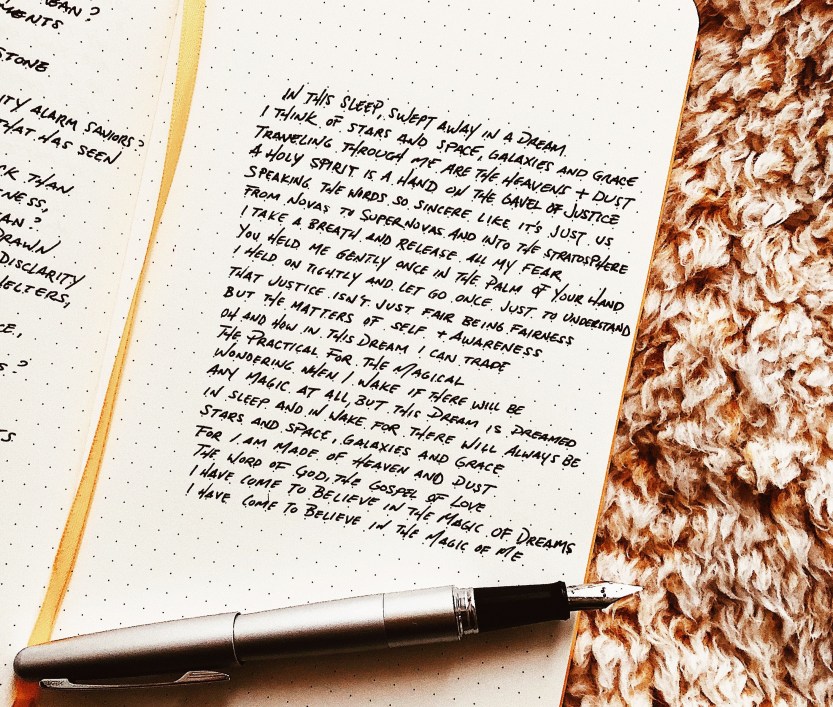 EAN?
MENTS
STONE
ITY ALARM SAVIORS?
THAT HAS SEEN
CK THAN
NESS,
EAN?
DRAWN
DISCLARITY
HELTERS,
CE,
S?
TS
IN THIS SLEEP, SWEPT AWAY IN A DREAM
I THINK OF STARS AND SPACE, GALAXIES AND GRACE
TRAVELING THROUGH ME ARE THE HEAVENS + DUST
A HOLY SPIRIT IS A HAND ON THE GAVEL OF JUSTICE
SPEAKING THE WORDS SO SINCERE LIKE IT'S JUST US
FROM NOVAS TO SUPERNOVAS AND INTO THE STRATOSPHERE
I TAKE A BREATH AND RELEASE ALL MY FEAR
YOU HELD ME GENTLY ONCE IN THE PALM OF YOUR HAND
I HELD ON TIGHTLY AND LET GO ONCE JUST TO UNDERSTAND
THAT JUSTICE ISN'T JUST FAIR BEING FAIRNESS
BUT THE MATTERS OF SELF + AWARENESS
OH AND HOW IN THIS DREAM I CAN TRADE
THE PRACTICAL FOR THE MAGICAL
WONDERING WHEN I WAKE IF THERE WILL BE
ANY MAGIC AT ALL, BUT THIS DREAM IS DREAMED
IN SLEEP AND IN WAKE FOR THERE WILL ALWAYS BE
STARS AND SPACE, GALAXIES AND GRACE
FOR I AM MADE OF HEAVEN AND DUST
THE WORD OF GOD, THE GOSPEL OF LOVE
I HAVE COME TO BELIEVE IN THE MAGIC OF DREAMS
I HAVE COME TO BELIEVE IN THE MAGIC OF ME